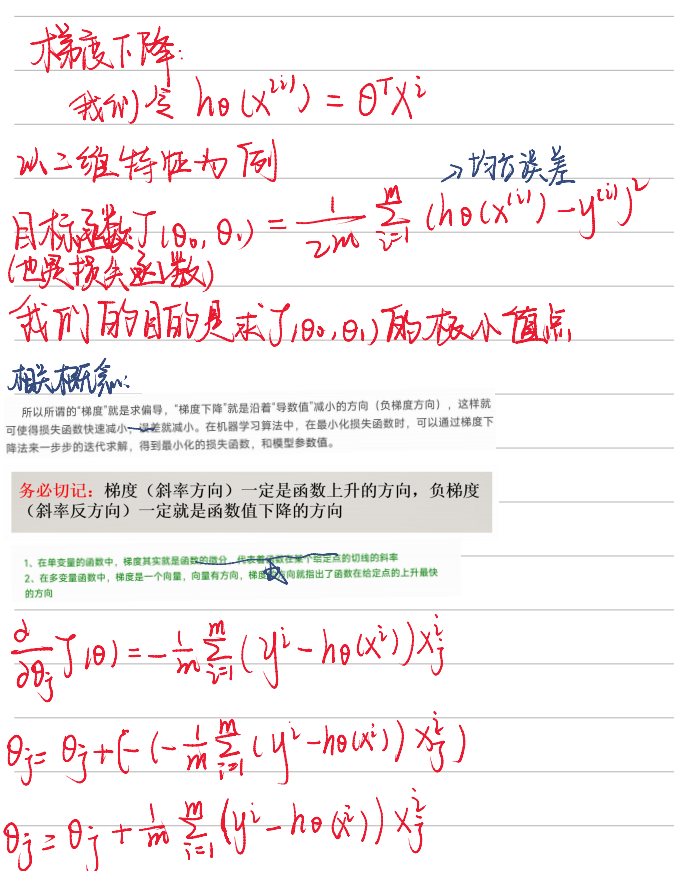 梯度下降:
我们令 hθ(x⁽ⁱ⁾) = θᵀxⁱ
以二维特征为例
→均方误差
目标函数J(θ₀, θ₁) = 1/2m ∑ᵢ₌₁ᵐ (hθ(x⁽ⁱ⁾) − y⁽ⁱ⁾)²
(也是损失函数)
我们的目的是求J(θ₀, θ₁)的极小值点
相关概念:
所以所谓的“梯度”就是求偏导，“梯度下降”就是沿着“导数值”减小的方向（负梯度方向），这样就
可使得损失函数快速减小，误差就减小。在机器学习算法中，在最小化损失函数时，可以通过梯度下
降法来一步步的迭代求解，得到最小化的损失函数，和模型参数值。
务必切记：梯度（斜率方向）一定是函数上升的方向，负梯度
（斜率反方向）一定就是函数值下降的方向
1、在单变量的函数中，梯度其实就是函数的微分，代表着函数在某个给定点的切线的斜率
2、在多变量函数中，梯度是一个向量，向量有方向，梯度的方向就指出了函数在给定点的上升最快
的方向
∂/∂θⱼ J(θ) = −1/m ∑ᵢ₌₁ᵐ (yⁱ − hθ(xⁱ)) xⱼⁱ
θⱼ = θⱼ + (− (−1/m ∑ᵢ₌₁ᵐ (yⁱ − hθ(xⁱ)) xⱼⁱ)
θⱼ = θⱼ + 1/m ∑ᵢ₌₁ᵐ (yⁱ − hθ(xⁱ)) xⱼⁱ